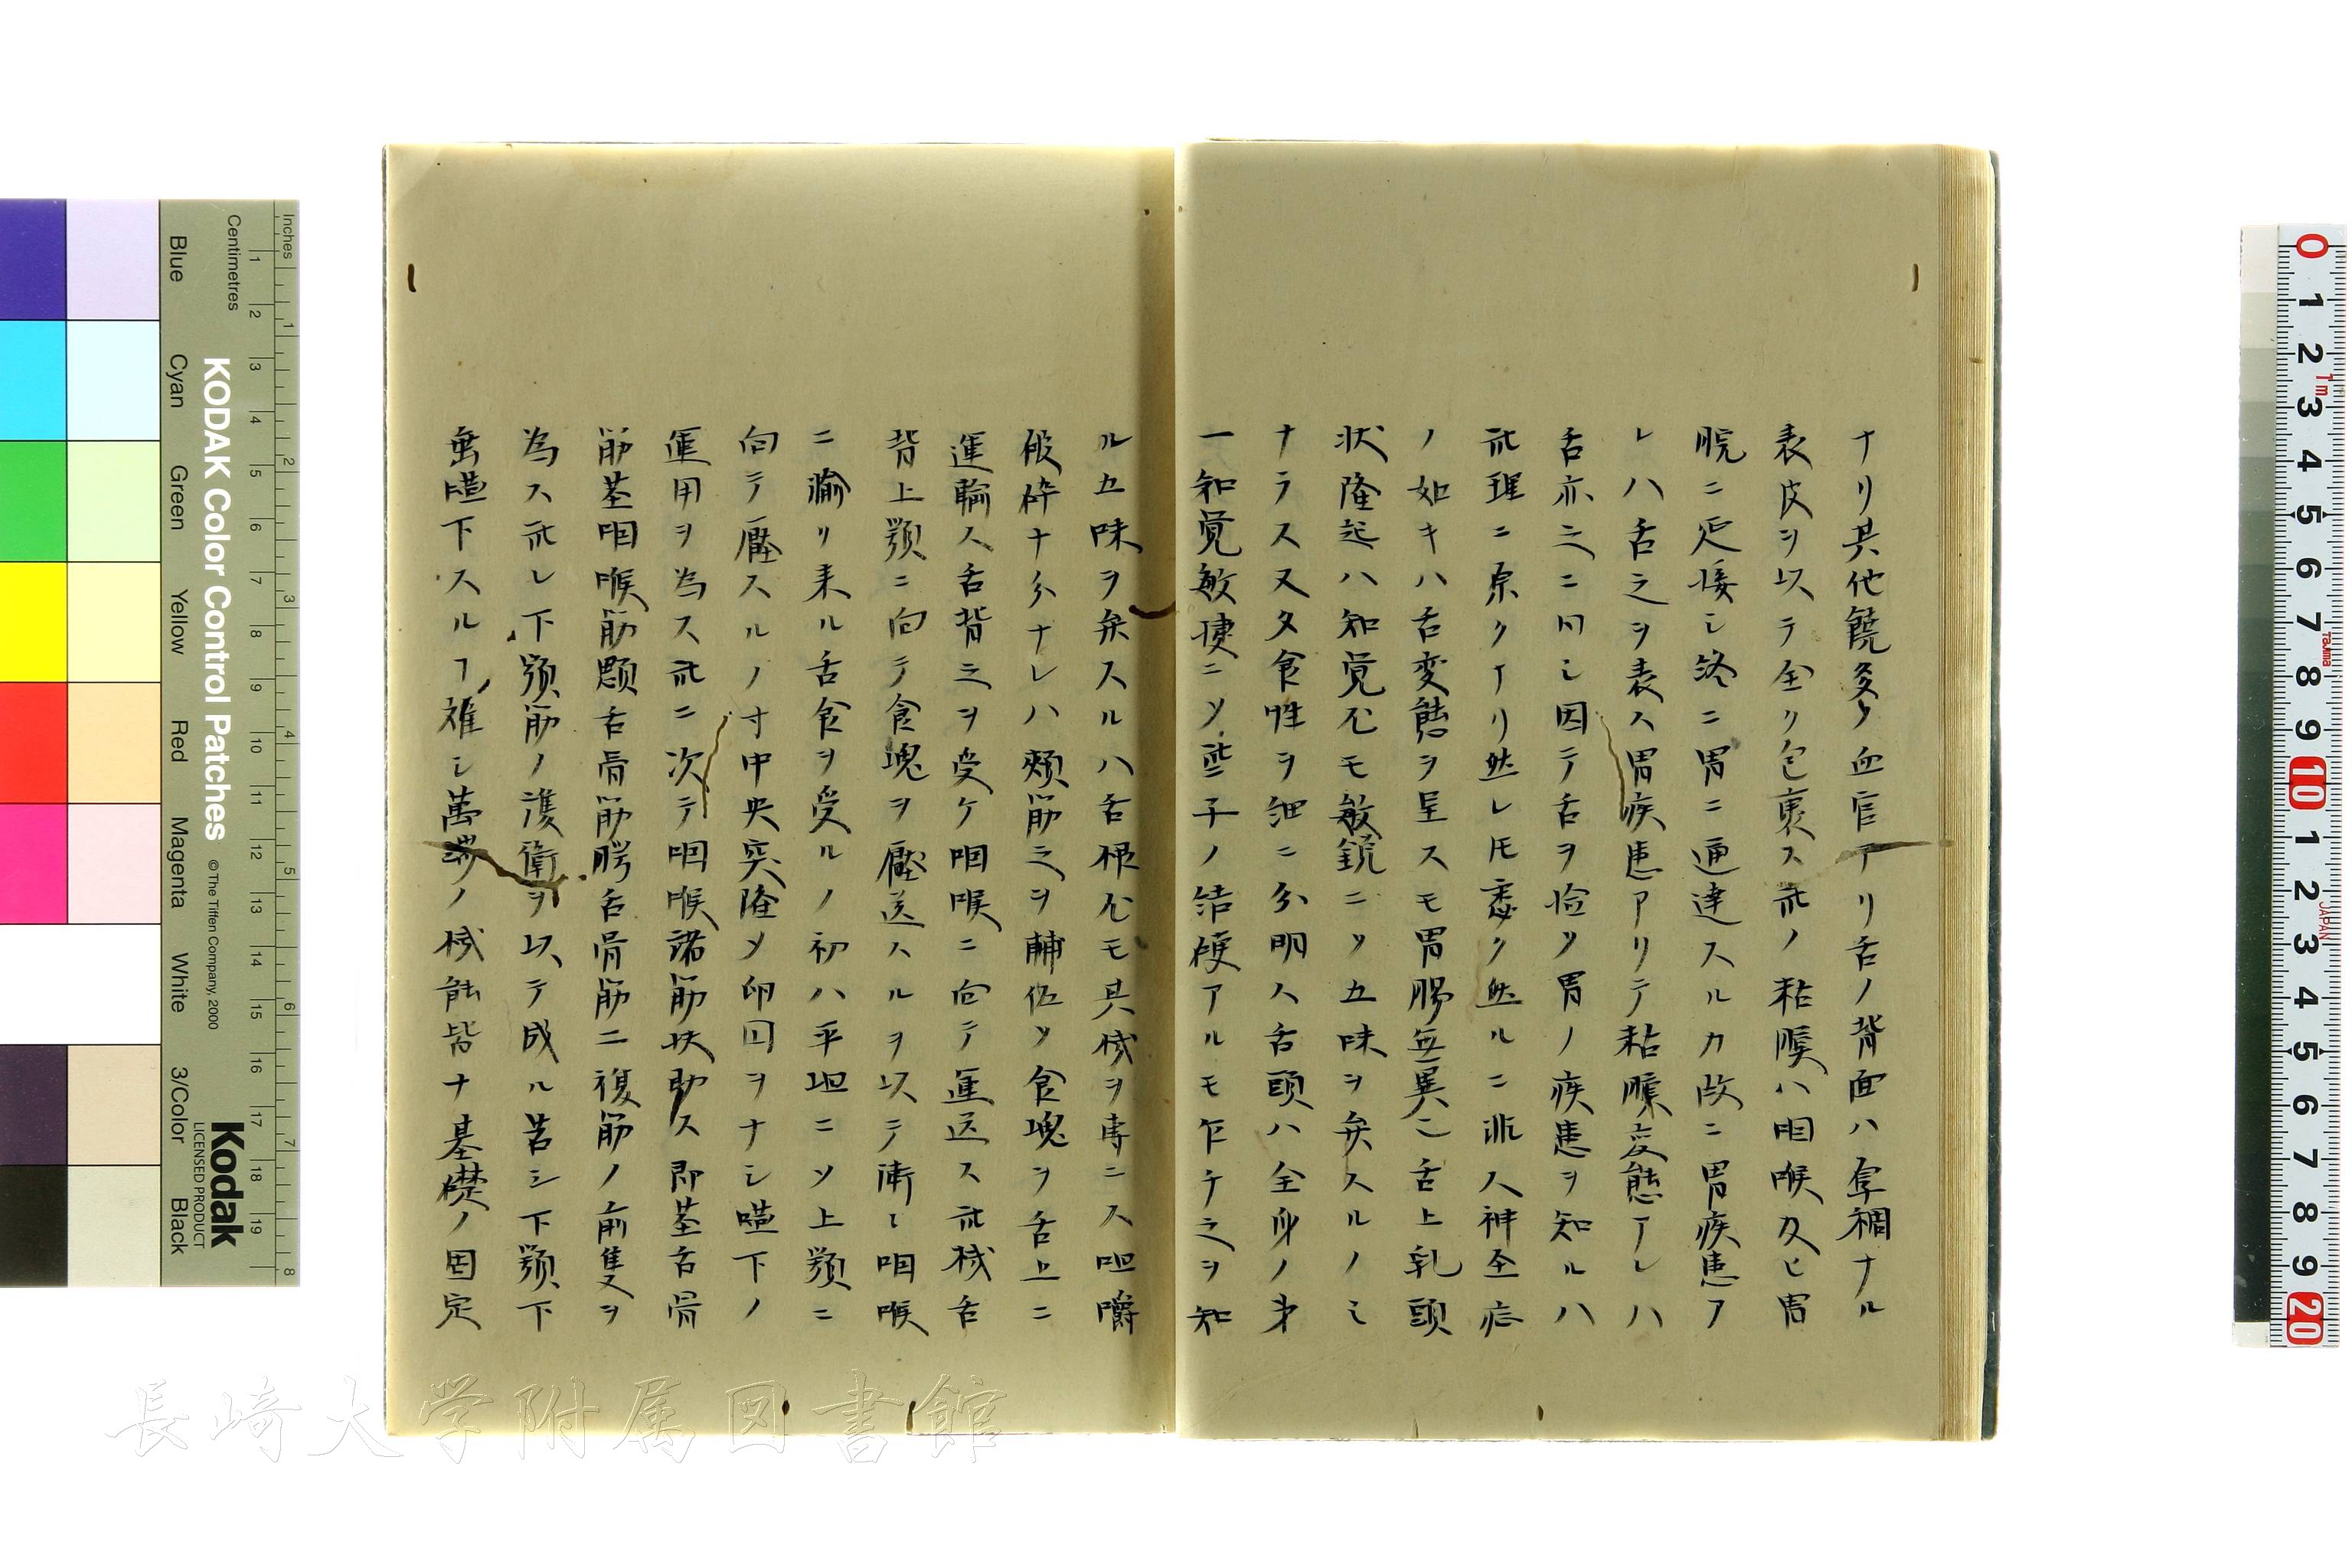 ナリ其他饒多ク血官アリ舌ノ背面ハ厚稠ナル
表皮ヲ以テ全ク包裹ス此ノ粘膜ハ咽喉及ヒ胃
脘ニ延接シ終ニ胃ニ通達スルカ故ニ胃疾患ア
レハ舌之ヲ表ス胃疾患アリテ粘膜変態アレハ
舌亦之ニ同シ因テ舌ヲ検ソ胃ノ疾患ヲ知ルハ
此理ニ原クナリ然レ𪜈悉ク然ルニ非ス神圣症
ノ如キハ舌変態ヲ呈スモ胃腸無異ニ舌上乳頭
状隆起ハ知覚尤モ敏鋭ニソ五味ヲ弁スルノミ
ナラス又タ食性ヲ細ニ分明ス舌頭ハ全身ノ第
一知覚敏捷ニソ些子ノ結硬アルモ乍チ之ヲ知
ル五味ヲ弁スルハ舌根尤モ其機ヲ専ニス咀嚼
破砕ナ分ナレハ頬筋之ヲ輔佐ソ食塊ヲ舌上ニ
運輸ス舌背之ヲ受ケ咽喉ニ向テ運送ス此機舌
背上顎ニ向テ食塊ヲ壓送スルヲ以テ漸ヒ咽喉
ニ瀉リ来ル舌食ヲ受ルノ初ハ平坦ニソ上顎ニ
向テ壓スルノ寸中央突隆ソ卵囙ヲナシ嚥下ノ
運用ヲ為ス此ニ次テ咽喉諸筋扶助ス即茎舌骨
筋茎咽喉筋顋舌骨筋腭舌骨筋二複筋ノ前隻ヲ
為ス此レ下顎筋ノ渡衛ヲ以テ成ル若シ下顎下
垂嚥下スルヿ難シ萬端ノ機能皆ナ基礎ノ固定
Blue
Cyan
Green
Yellow
Red
Magenta
White
3/Color
Black
KODAK Color Control Patches
© The Tiffen Company, 2000
Kodak
LICENSED PRODUCT
Centimetres
Inches
長崎大学附属図書館